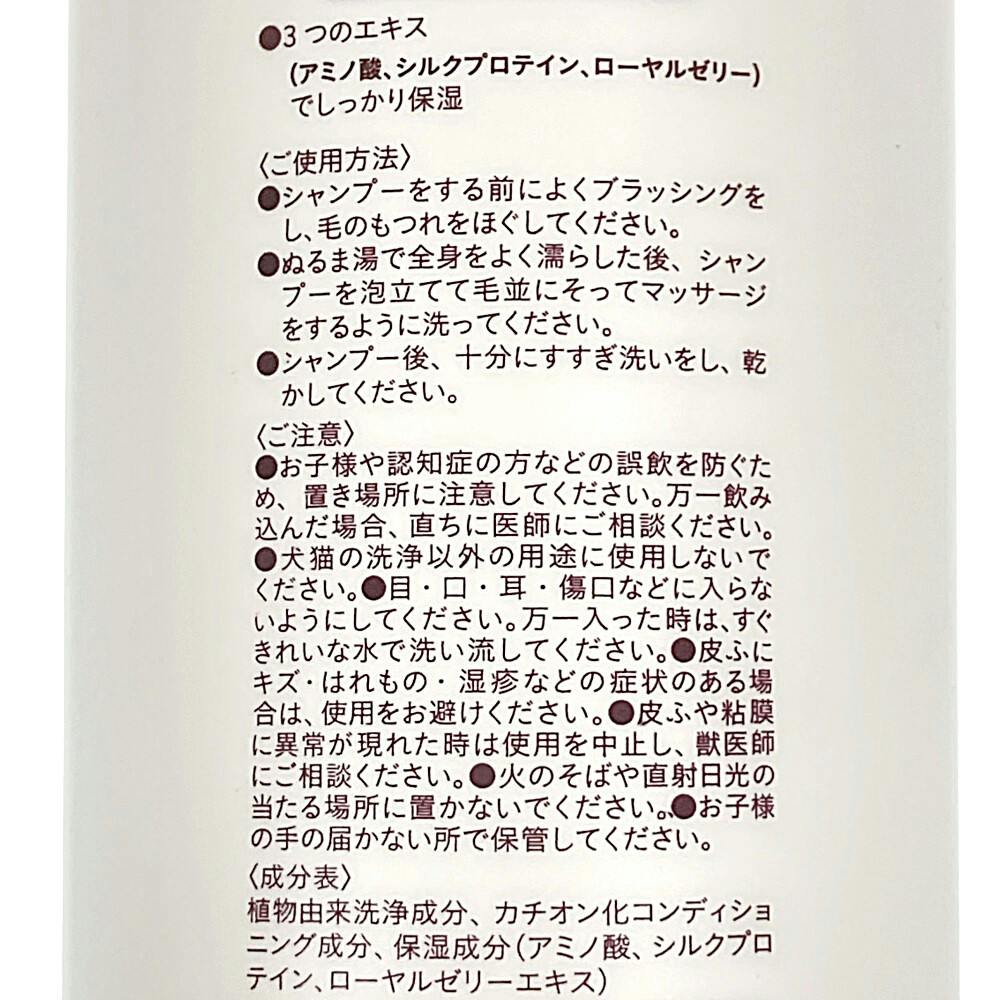 ●3つのエキス
(アミノ酸、シルクプロテイン、ローヤルゼリー)
でしっかり保湿
〈ご使用方法〉
●シャンプーをする前によくブラッシングを
し、毛のもつれをほぐしてください。
●ぬるま湯で全身をよく濡らした後、シャン
プーを泡立てて毛並にそってマッサージ
をするように洗ってください。
●シャンプー後、十分にすすぎ洗いをし、乾
かしてください。
〈ご注意〉
●お子様や認知症の方などの誤飲を防ぐた
め、置き場所に注意してください。万一飲み
込んだ場合、直ちに医師にご相談ください。
●犬猫の洗浄以外の用途に使用しないで
ください。●目・口・耳・傷口などに入らな
いようにしてください。万一入った時は、すぐ
きれいな水で洗い流してください。●皮ふに
キズ・はれもの・湿疹などの症状のある場
合は、使用をお避けください。●皮ふや粘膜
に異常が現れた時は使用を中止し、獣医師
にご相談ください。●火のそばや直射日光の
当たる場所に置かないでください。、●お子様
の手の届かない所で保管してください。
〈成分表〉
植物由来洗浄成分、カチオン化コンディショ
ニング成分、保湿成分(アミノ酸、シルクプロ
テイン、ローヤルゼリーエキス)